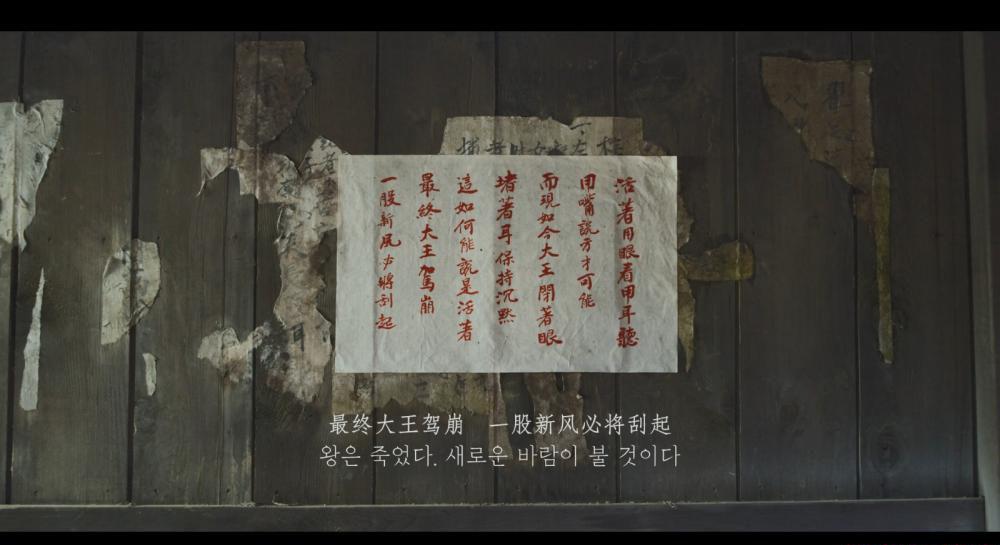 活著用眼看用耳聽
用嘴說方才可能
而現如今大王閉著眼
堵著耳保持沉默
這如何能說是活著
最終大王駕崩
一股新風必將刮起
最终大王驾崩　一股新风必将刮起
왕은 죽었다. 새로운 바람이 불 것이다